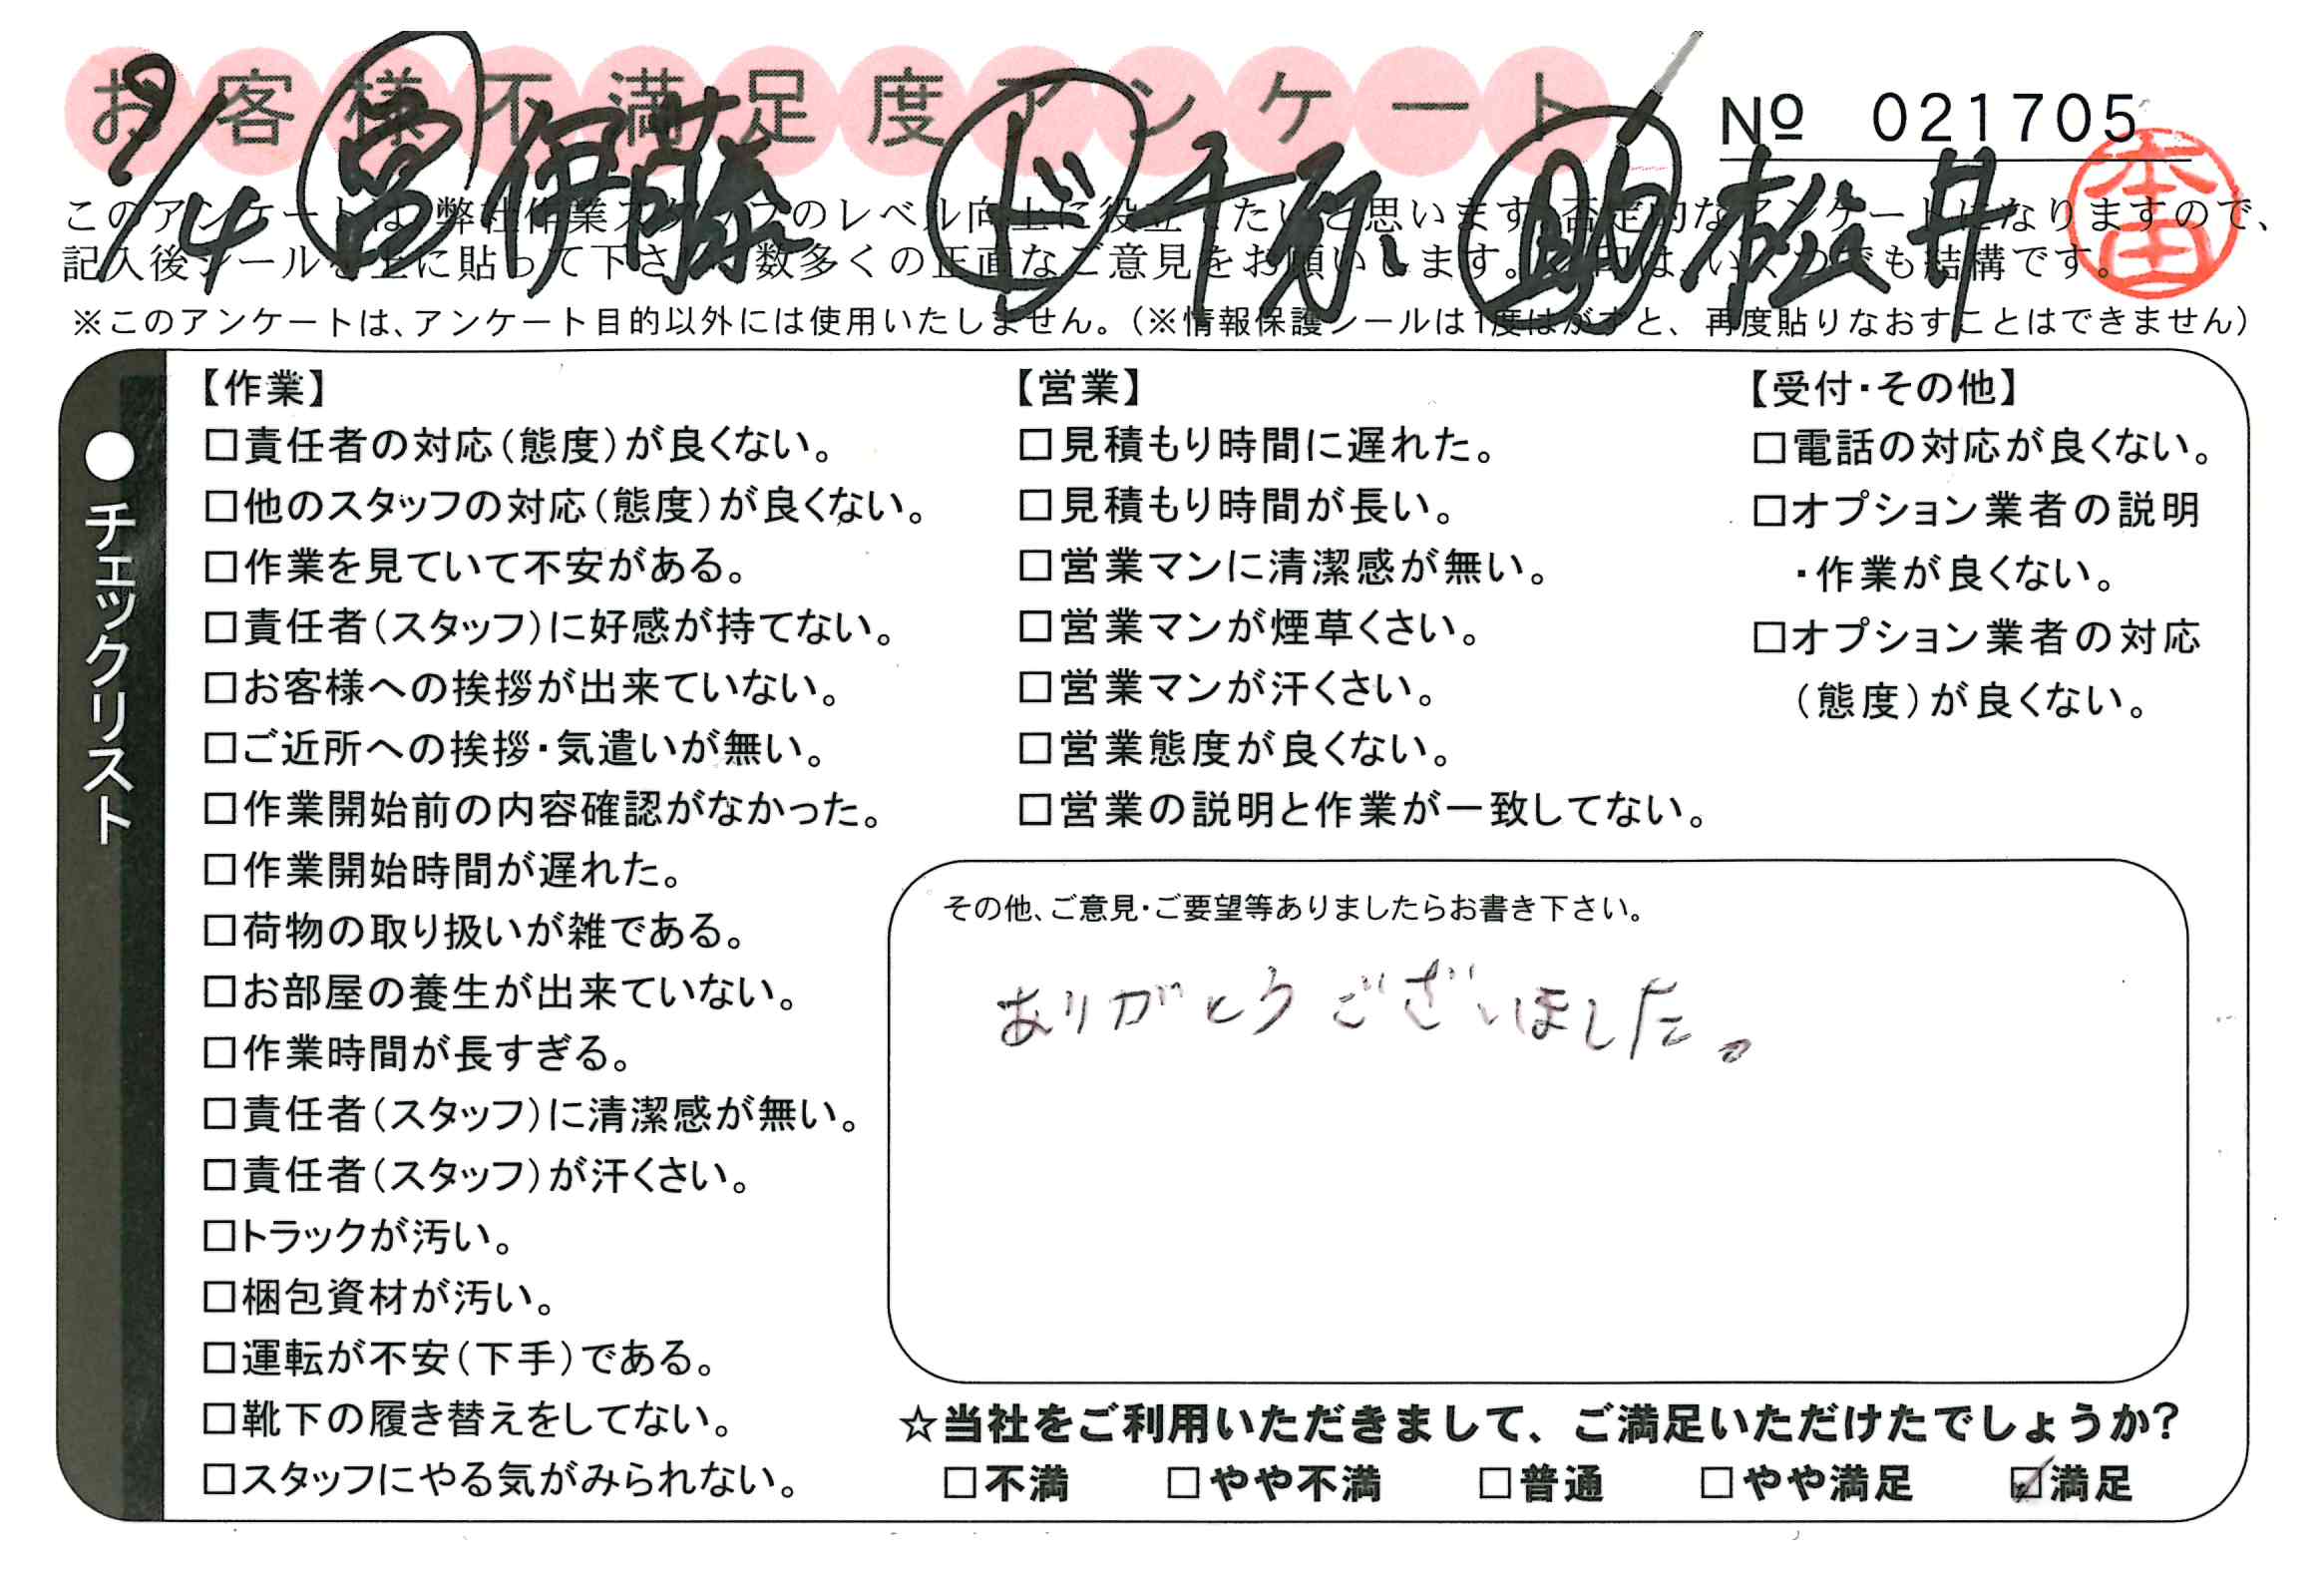 お客様不満足度アンケート
№ 021705
9/4 営 伊藤 ド 千原 助 松井
本田
このアンケートは、弊社作業スタッフのレベル向上に役立てたいと思います。否定的なアンケートになりますので、
記入後シールを上に貼って下さい。数多くの正直なご意見をお願いします。
※このアンケートは、アンケート目的以外には使用いたしません。(※情報保護シールは1度はがすと、再度貼りなおすことはできません)
●チェックリスト
【作業】
□責任者の対応(態度)が良くない。
□他のスタッフの対応(態度)が良くない。
□作業を見ていて不安がある。
□責任者(スタッフ)に好感が持てない。
□お客様への挨拶が出来ていない。
□ご近所への挨拶・気遣いが無い。
□作業開始前の内容確認がなかった。
□作業開始時間が遅れた。
□荷物の取り扱いが雑である。
□お部屋の養生が出来ていない。
□作業時間が長すぎる。
□責任者(スタッフ)に清潔感が無い。
□責任者(スタッフ)が汗くさい。
□トラックが汚い。
□梱包資材が汚い。
□運転が不安(下手)である。
□靴下の履き替えをしてない。
□スタッフにやる気がみられない。
【営業】
□見積もり時間に遅れた。
□見積もり時間が長い。
□営業マンに清潔感が無い。
□営業マンが煙草くさい。
□営業マンが汗くさい。
□営業態度が良くない。
□営業の説明と作業が一致してない。
【受付・その他】
□電話の対応が良くない。
□オプション業者の説明
・作業が良くない。
□オプション業者の対応
(態度)が良くない。
その他、ご意見・ご要望等ありましたらお書き下さい。
ありがとうございました。
☆当社をご利用いただきまして、ご満足いただけたでしょうか?
□不満 □やや不満 □普通 □やや満足 ☑満足